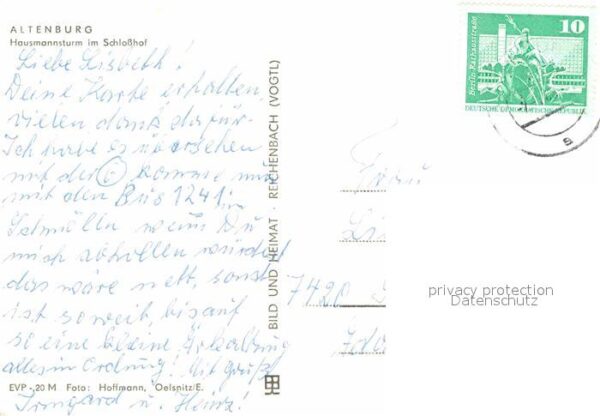 ALTENBURG
Hausmannsturm im Schloßhof
Liebe Lisbeth!
Deine Karte erhalten,
vielen dank dafür.
Ich habe es übersehen
mit der 6 komme nun
mit den Bus 1241 in
wenn Du
mich abhollen würdest
das wäre nett, sonst
ist soweit, bis auf
so eine kleine Erkaltung
alles in Ordnung! Mit Gruß
Irmgard u. Heinz!
EVP -,20 M Foto: Hoffmann, Oelsnitz/E.
BILD UND HEIMAT REICHENBACH (VOGTL)
10
Berlin-Rathausstraße
DEUTSCHE DEMOKRATISCHE REPUBLIK
s
Frau
7420
privacy protection
Datenschutz